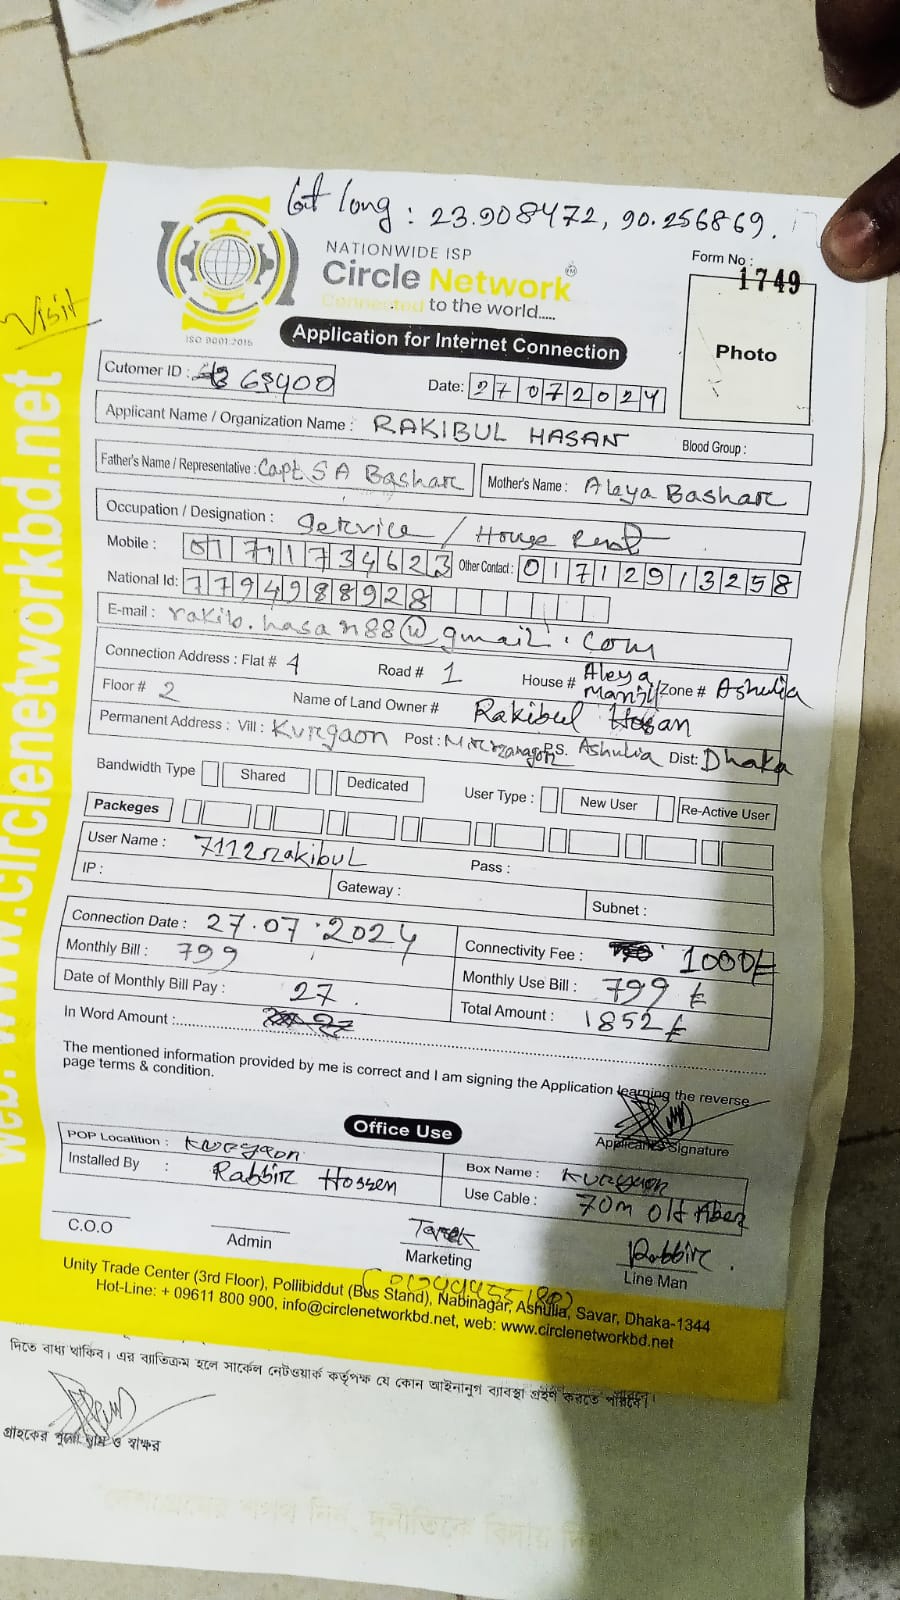 Lat long : 23.908472, 90.256869.
Visit
NATIONWIDE ISP
Circle Network
Connected to the world.....
ISO 9001:2015
Form No : 1749
Photo
Application for Internet Connection
Cutomer ID : 68400
Date: 27072024
Applicant Name / Organization Name : RAKIBUL HASAN Blood Group :
Father's Name / Representative : Capt. S A Bashar Mother's Name : Aleya Bashar
Occupation / Designation : Service / House Rent
Mobile : 01711734623 Other Contact : 01712913258
National Id: 7794988928
E-mail : rakib.hasan88@gmail.com
Connection Address : Flat # 4 Road # 1 House # Aleya Manjil Zone # Ashulia
Floor # 2 Name of Land Owner # Rakibul Hasan
Permanent Address : Vill : Kurgaon Post : Mirzanagar P.S. Ashulia Dist: Dhaka
Bandwidth Type Shared Dedicated User Type : New User Re-Active User
Packeges
User Name : 7112rakibul Pass :
IP : Gateway : Subnet :
Connection Date : 27.07.2024 Connectivity Fee : 1000/=
Monthly Bill : 799 Monthly Use Bill : 799
Date of Monthly Bill Pay : 27. Total Amount : 1852
In Word Amount :
The mentioned information provided by me is correct and I am signing the Application learning the reverse
page terms & condition.
Applicant's Signature
Office Use
POP Locatition : Kurgaon Box Name : Kurgaon
Installed By : Rabbir Hossen Use Cable : 70m Olt fiber
C.O.O Admin Tarek Marketing Rabbir. Line Man
Unity Trade Center (3rd Floor), Pollibiddut (Bus Stand), Nabinagar, Ashulia, Savar, Dhaka-1344
Hot-Line: + 09611 800 900, info@circlenetworkbd.net, web: www.circlenetworkbd.net
web: www.circlenetworkbd.net
দিতে বাধ্য থাকিব। এর ব্যতিক্রম হলে সার্কেল নেটওয়ার্ক কর্তৃপক্ষ যে কোন আইনানুগ ব্যাবস্থা গ্রহণ করতে পারবে।
গ্রাহকের পুরো নাম ও স্বাক্ষর